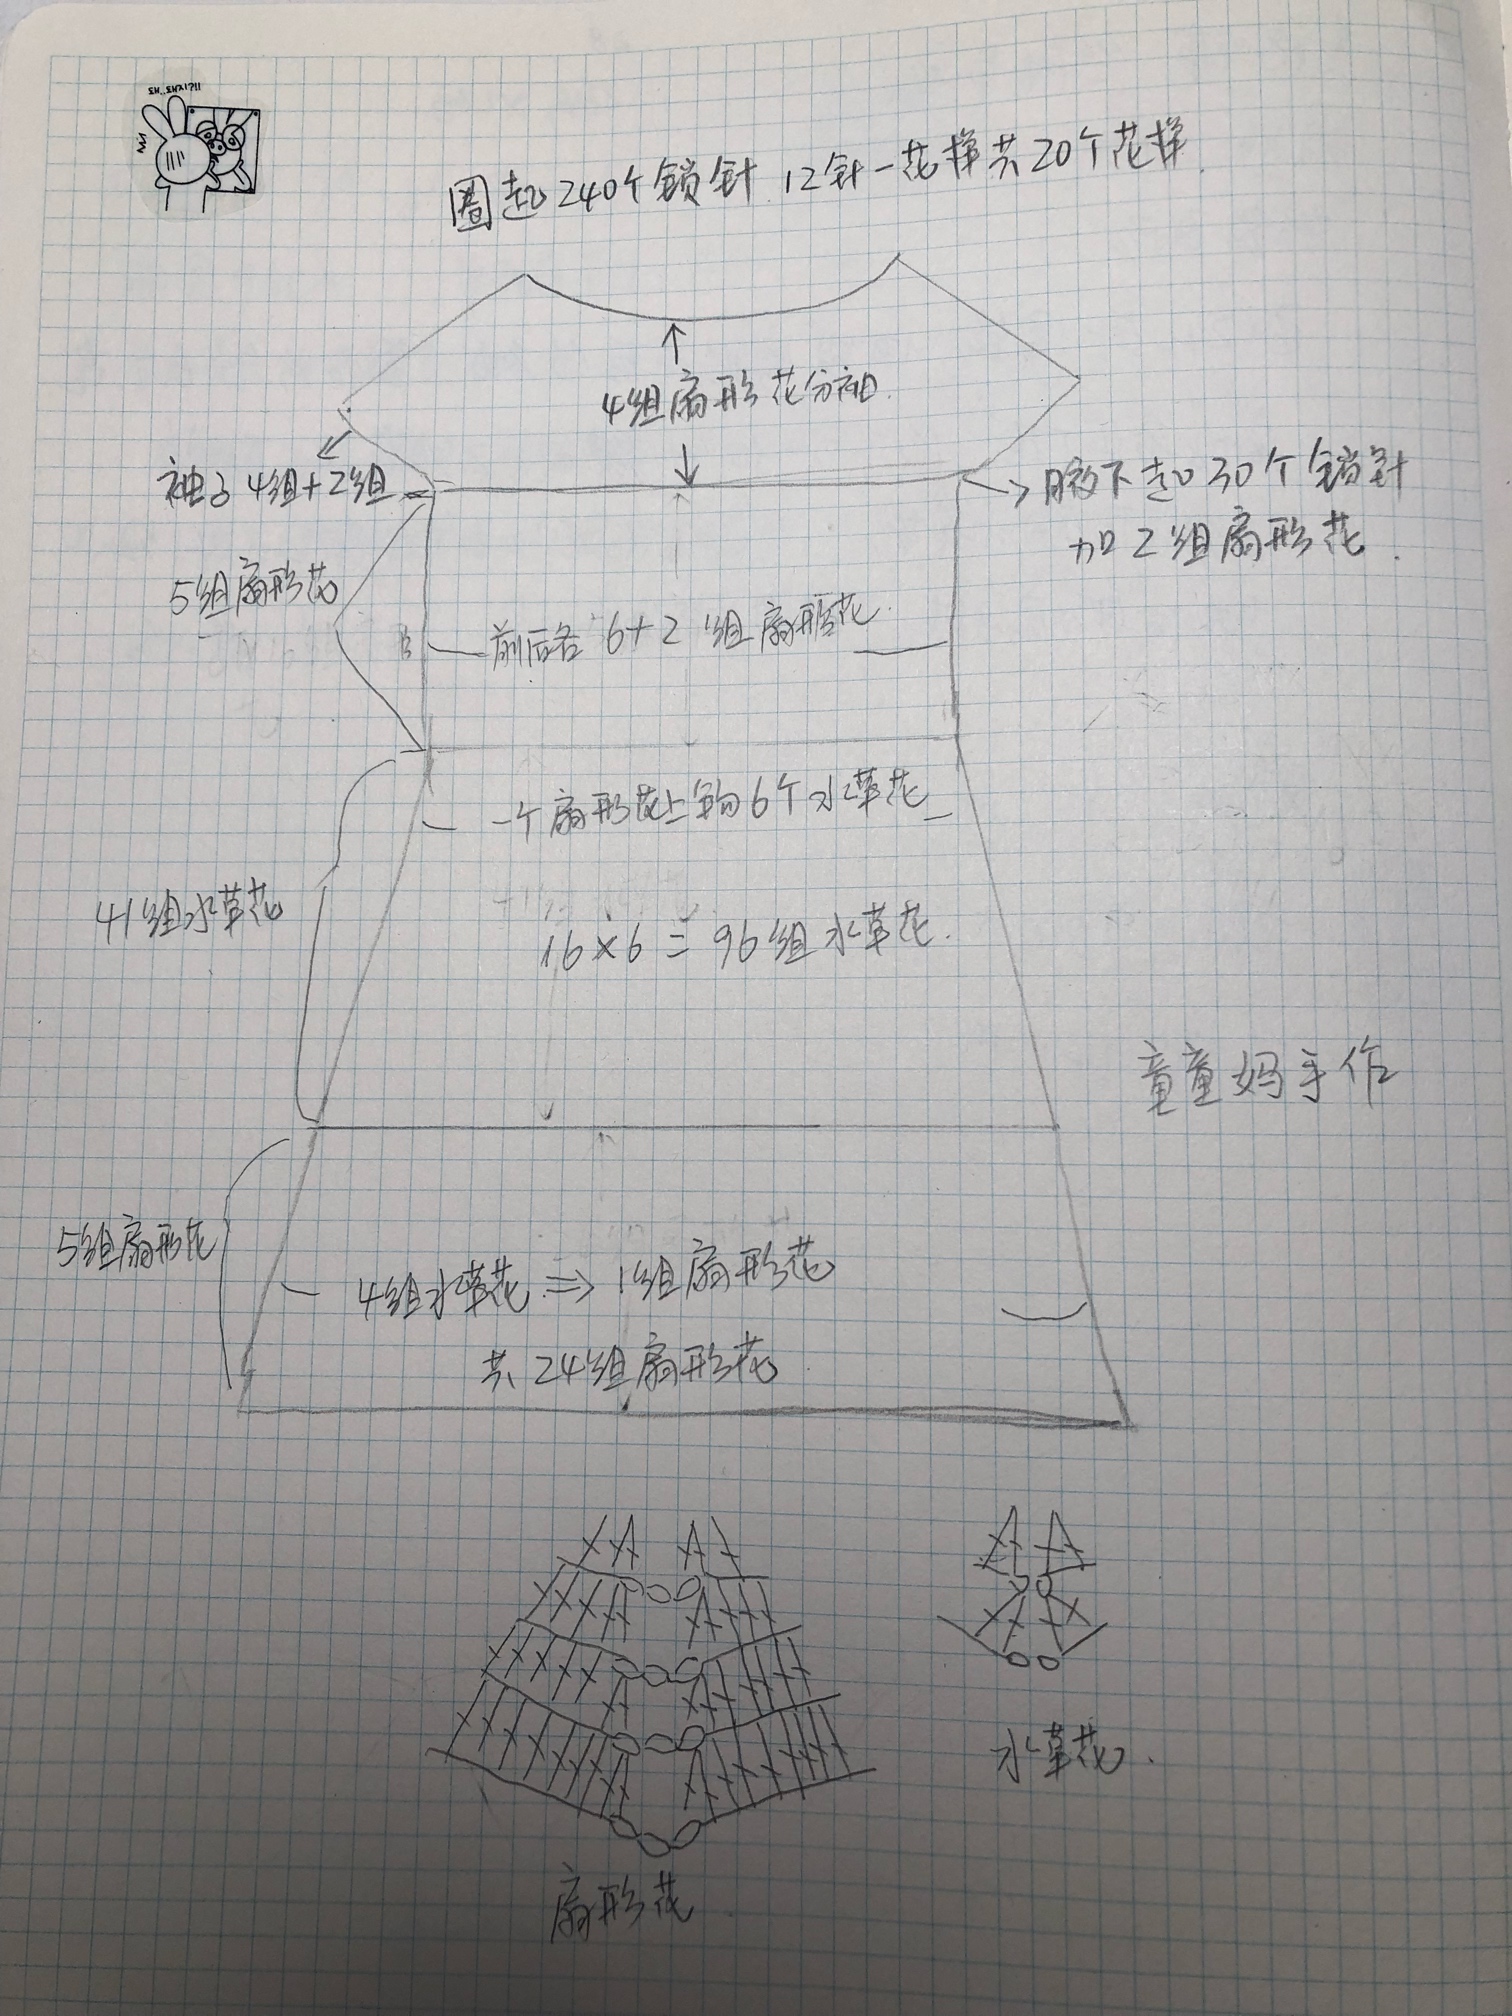 圈起240个锁针 12针一花样共20个花样
4组扇形花分袖
袖子4组+2组
腋下起30个锁针
加2组扇形花.
5组扇形花
前后各 6+2 组扇形花
一个扇形花上钩6个水草花
41组水草花
16×6=96组水草花.
童童妈手作
5组扇形花
4组水草花⇒1组扇形花
共24组扇形花
水草花.
扇形花